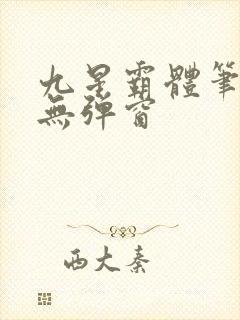 九星霸體筆
無彈窗
西大秦